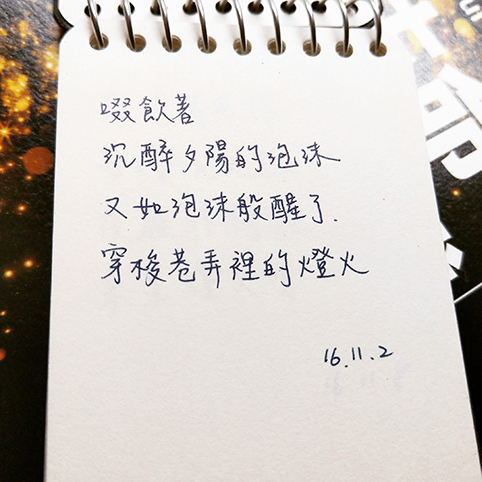 啜飲著
沉醉夕陽的泡沫
又如泡沫般醒了.
穿梭巷弄裡的燈火
16.11.2